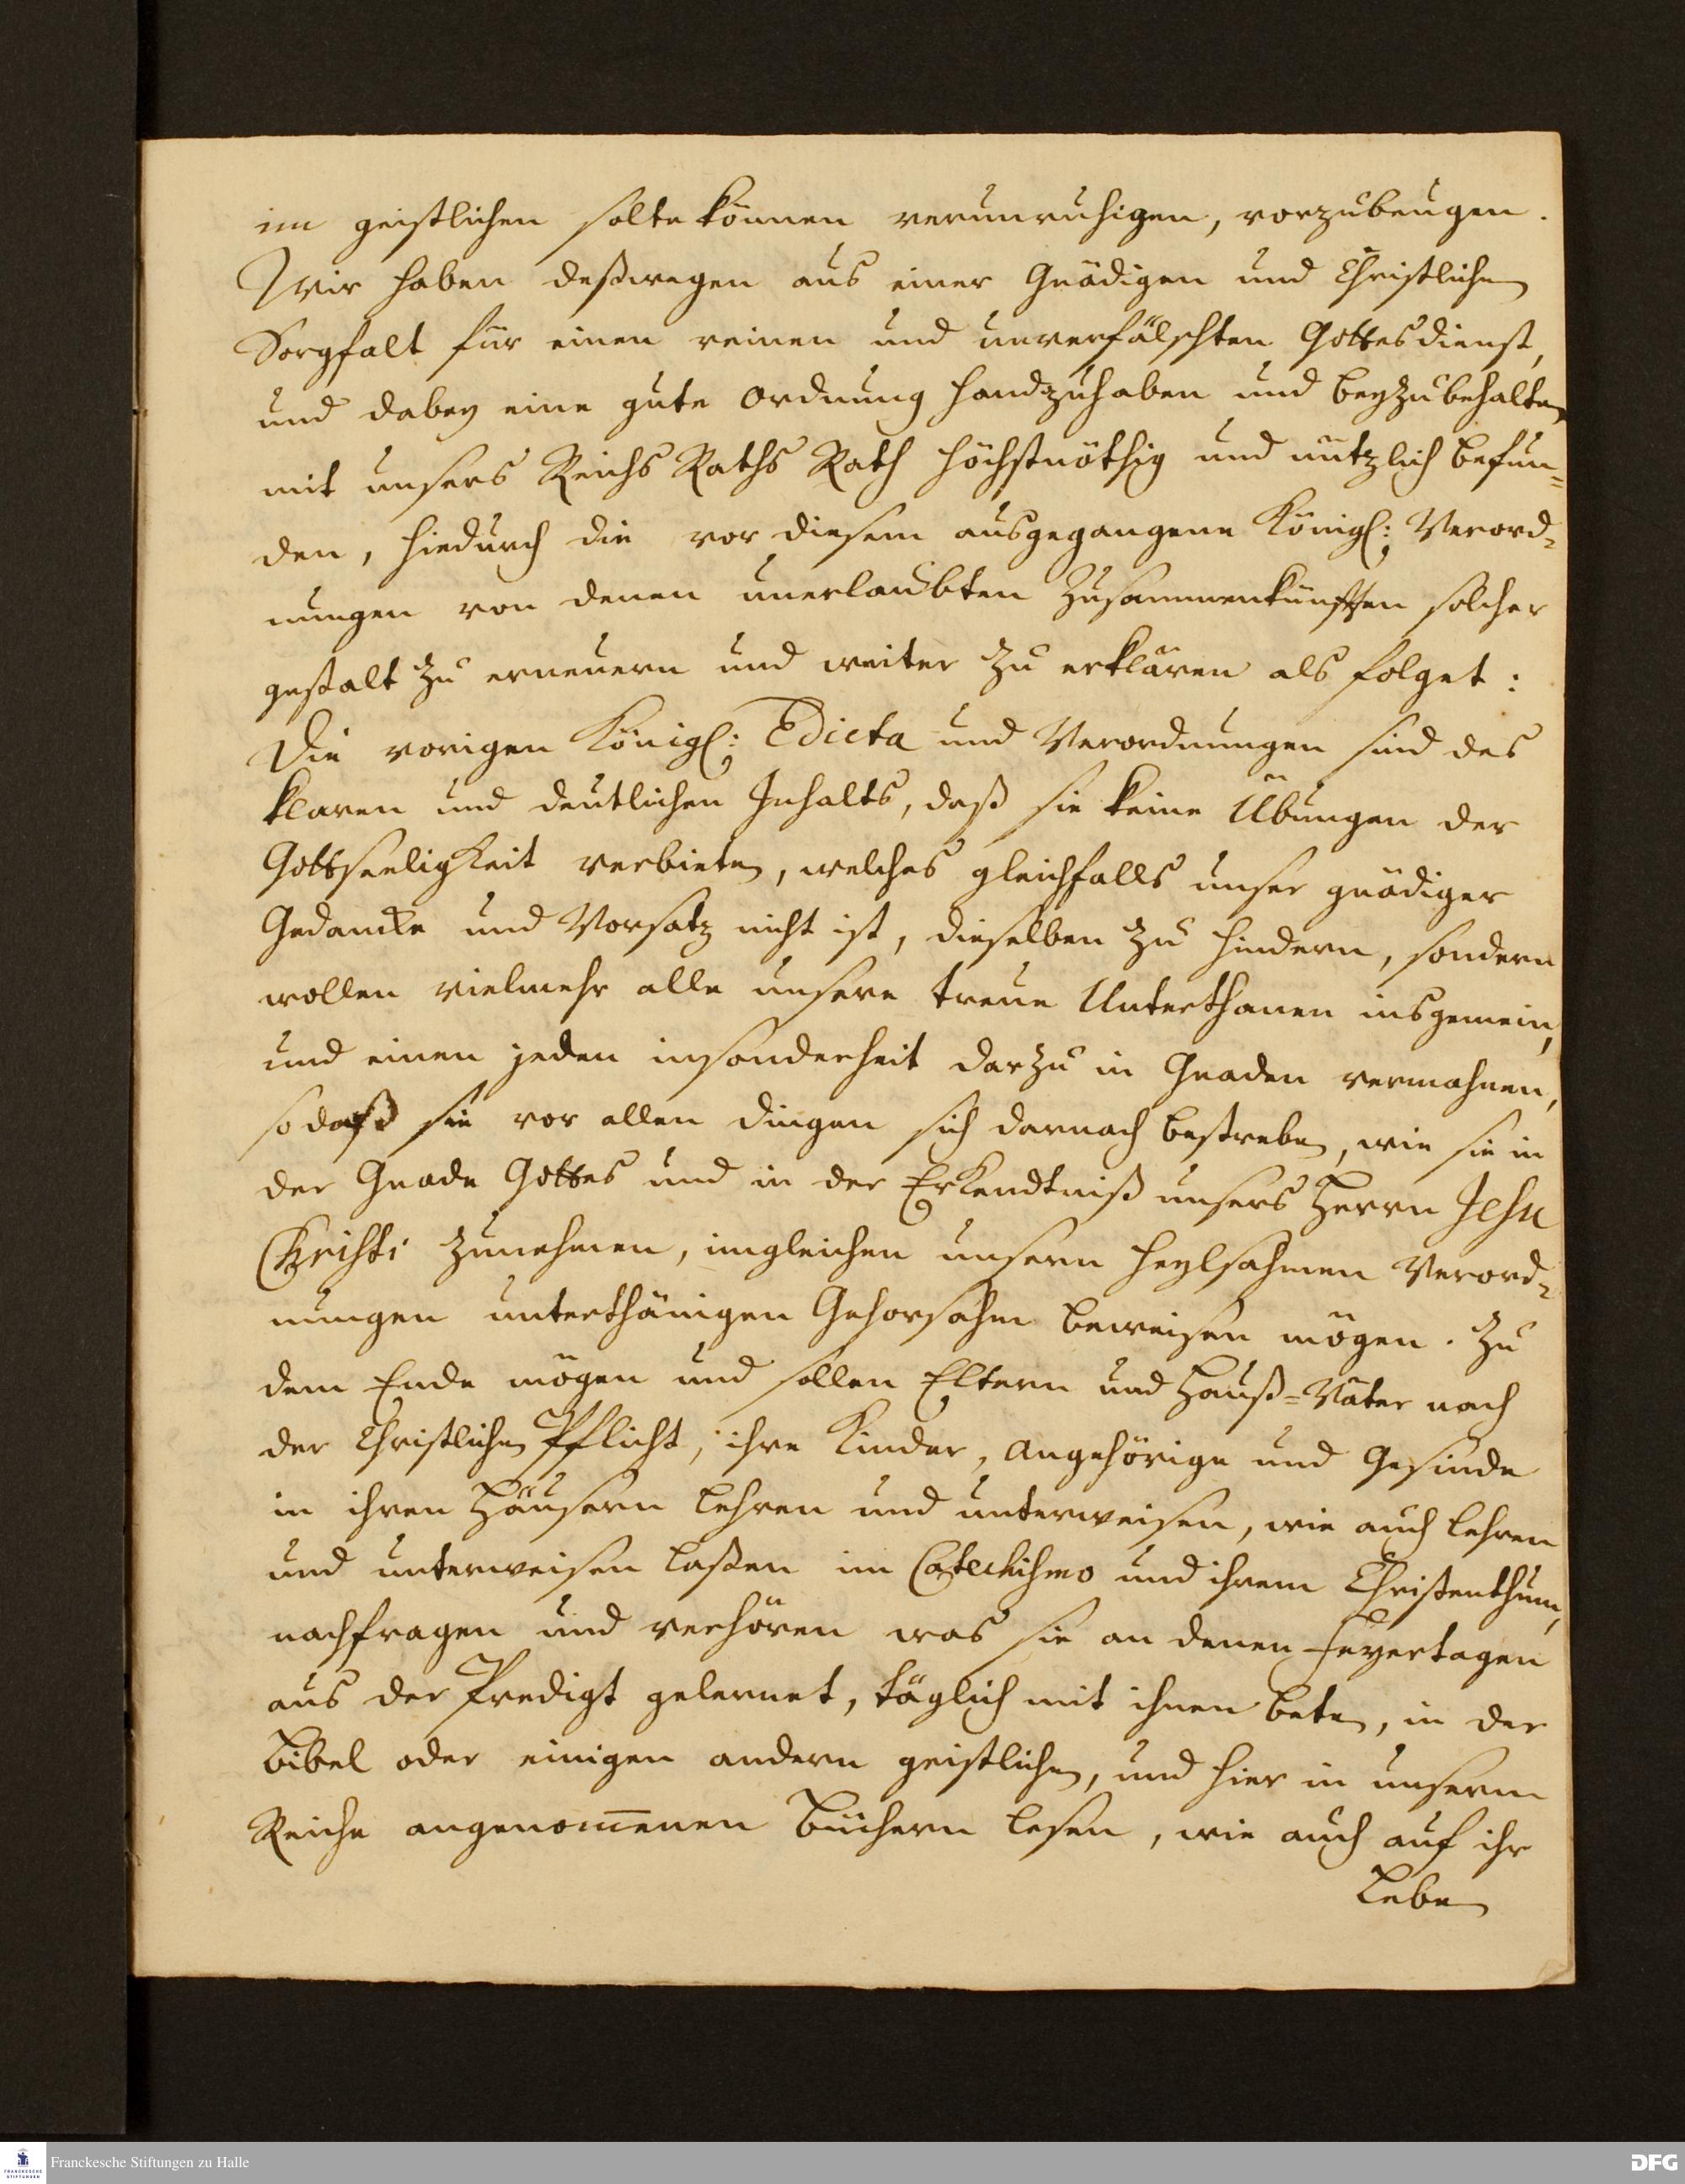 im geistlichen solte können verunruhigen, vorzubeugen.
Wir haben deßwegen aus einer Gnädigen und Christlichen
Sorgfalt für einen reinen und unverfälschten Gottesdienst,
und dabey eine gute Ordnung handzuhaben und beyzubehalten
mit unsers Reichs Raths Rath höchstnöthig und nützlich befun=
den, hiedurch die vor diesem ausgegangene Königl: Verord=
nungen von denen unerlaubten Zusammenkünfften solcher
gestalt zu erneuern und weiter zu erklären als folget:
Die vorigen Königl: Edicta und Verordnungen sind des
klaren und deutlichen Inhalts, daß sie keine Übungen der
Gottseeligkeit verbieten, welches gleichfalls unser gnädiger
Gedancke und Vorsatz nicht ist, dieselben zu hindern, sondern
wollen vielmehr alle unsere treue Unterthanen insgemein,
und einen jeden insonderheit darzu in Gnaden vermahnen,
so daß sie vor allen dingen sich darnach bestreben, wie sie in
der Gnade Gottes und in der Erkendtniß unsers Herrn Jesu
Christi zunehmen, imgleichen unsern heylsahmen Verord=
nungen unterthänigen Gehorsahm beweisen mögen. Zu
dem Ende mögen und sollen Eltern und Hauß=Väter nach
der Christlichen Pflicht, ihre Kinder, Angehörige und Gesinde
in ihren Häusern lehren und unterweisen, wie auch lehren
und unterweisen laßen im Catechismo und ihrem Christenthum,
nachfragen und verhören was sie an denen Feyertagen
aus der Predigt gelernet, täglich mit ihnen beten, in der
Bibel oder einigen andern geistlichen, und hier in unserm
Reiche angenom̅enen Büchern lesen, wie auch auf ihr
Leben
Franckesche Stiftungen zu Halle
FRANCKESCHE STIFTUNGEN
DFG